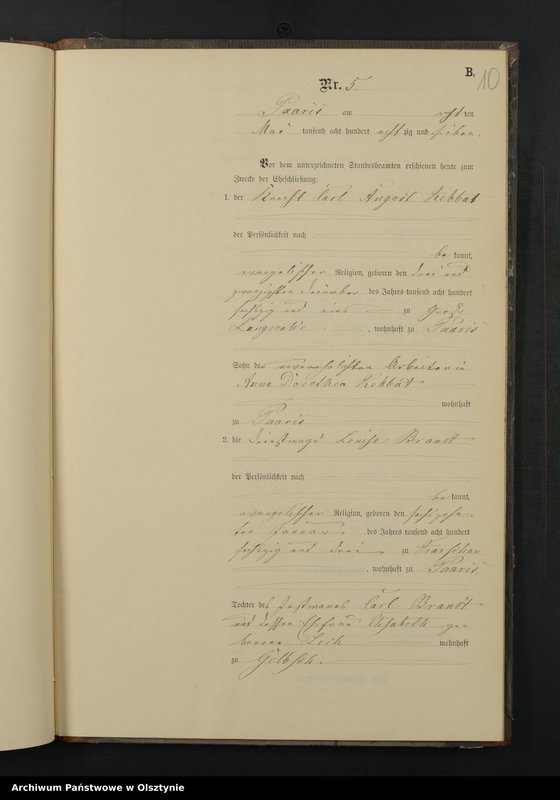 B.
10
Nr. 5.
Paaris am achtten
Mai tausend acht hundert achtzig und sieben.
Vor dem unterzeichneten Standesbeamten erschienen heute zum
Zwecke der Eheschließung:
1. der Knecht Carl August Kebbat
der Persönlichkeit nach
bekannt,
evangelischer Religion, geboren den drei und
zwanzigsten Dezember des Jahres tausend acht hundert
sechszig und eins zu Groß
Langwalde, wohnhaft zu Paaris
Sohn der unverehelichten Arbeiterin
Anna Dorothea Kebbat
wohnhaft
zu Paaris
2. die Dienstmagd Louise Brandt
der Persönlichkeit nach
bekannt,
evangelischer Religion, geboren den sechszehn
ten Januar des Jahres tausend acht hundert
sechszig und drei zu Karschau
, wohnhaft zu Paaris
Tochter des Instmanns Carl Brandt
und dessen Ehefrau Elisabeth ge
borene Lech wohnhaft
zu
Archiwum Państwowe w Olsztynie